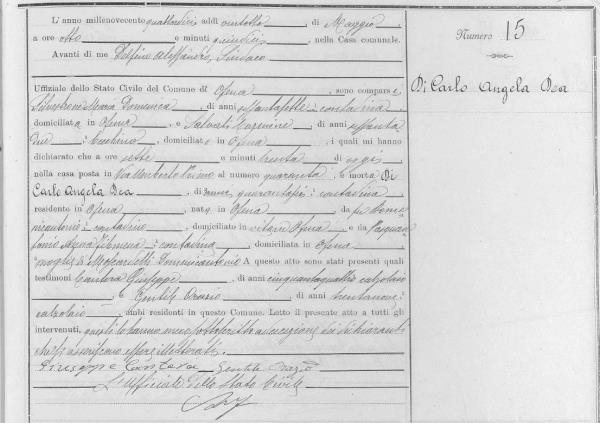 L'anno millenovecento quattordici addì ventotto, di Maggio,
a ore otto e minuti quindici, nella Casa comunale.
Avanti di me Delfino Alessandro, Sindaco
Uffiziale dello Stato Civile del Comune di Ofena, sono comparsi
Silvestrone Maria Domenica, di anni contadina
domiciliata in Ofena, e Salvati Carmine, di anni sessanta
due, becchino, domiciliato in Ofena, i quali mi hanno
dichiarato che a ore sette e minuti trenta di oggi,
nella casa posta in Via Umberto Primo al numero quaranta, è morta Di
Carlo Angela Dea, di anni contadina
residente in Ofena, nata in Ofena, da fu Dome-
nicantonio, contadino, domiciliato in vita in Ofena, e da
contadina, domiciliata in Ofena,
moglie di Moscardelli Domenicantonio A questo atto sono stati presenti quali
testimoni Cantera Giuseppe, di anni cinquantaquattro calzolaio
, e Gentile Orazio, di anni trentanove
calzolaio, ambi residenti in questo Comune. Letto il presente atto a tutti gli
intervenuti, questi lo hanno meco sottoscritto ad eccezione dei dichiaranti
illetterati.
Giuseppe Cantera Gentile Orazio
L'Ufficiale dello Stato Civile
Numero 15
Di Carlo Angela Dea